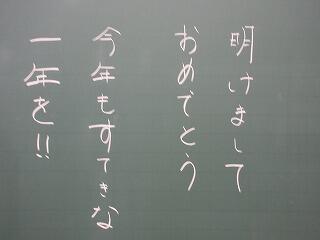 明けまして
おめでとう
今年もすてきな
一年を!!